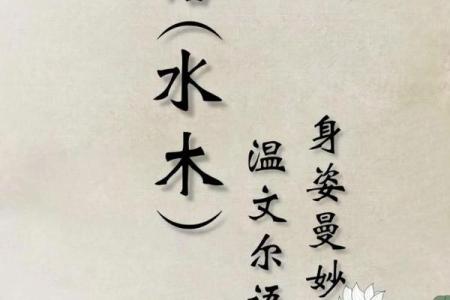 身姿曼妙
温文尔语
（水木）